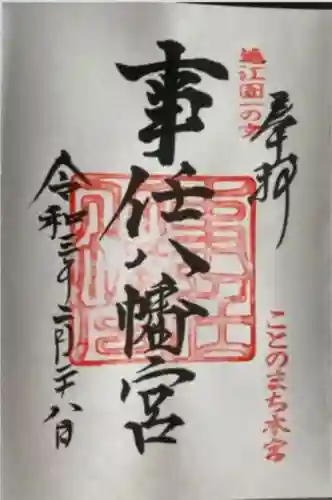 奉拝
遠江國一の宮
事任八幡宮
ことのまち本宮
令和三年二月二十八日